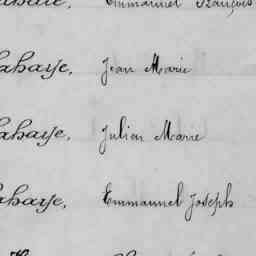 Emmanuel François
ahaye, Jean Marie
ahaye, Julien Marie
ahaye, Emmanuel Joseph